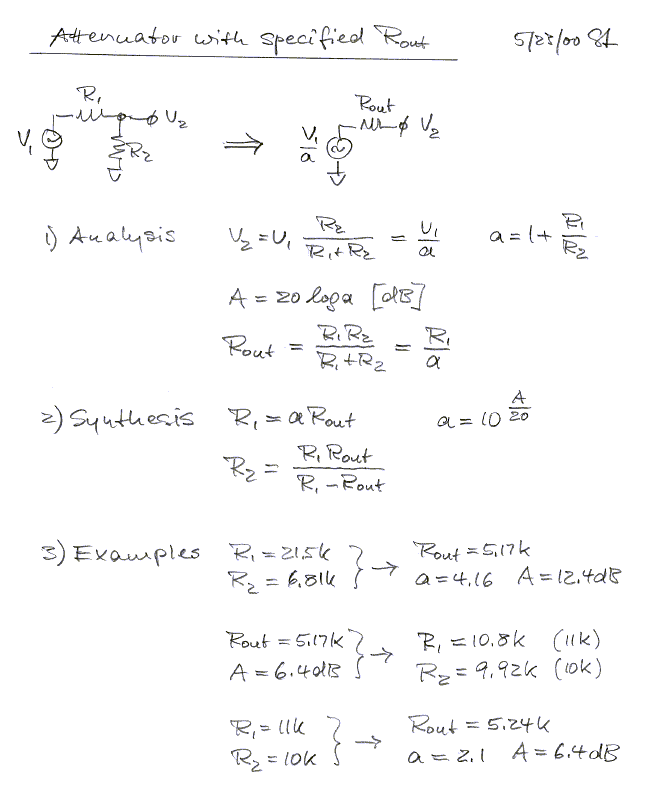 Attenuator with specified Rout 5/23/00
R1 V2 Rout V2
V1 R2 ⇒ V1/a
1) Analysis V2 = V1 R2/(R1+R2) = V1/a a = 1 + R1/R2
A = 20 log a [dB]
Rout = R1R2/(R1+R2) = R1/a
2) Synthesis R1 = a Rout a = 10^(A/20)
R2 = R1 Rout/(R1 - Rout)
3) Examples R1 = 21.5k } → Rout = 5.17k
R2 = 6.81k a = 4.16 A = 12.4dB
Rout = 5.17k } → R1 = 10.8k (11k)
A = 6.4dB R2 = 9.92k (10k)
R1 = 11k } → Rout = 5.24k
R2 = 10k a = 2.1 A = 6.4dB